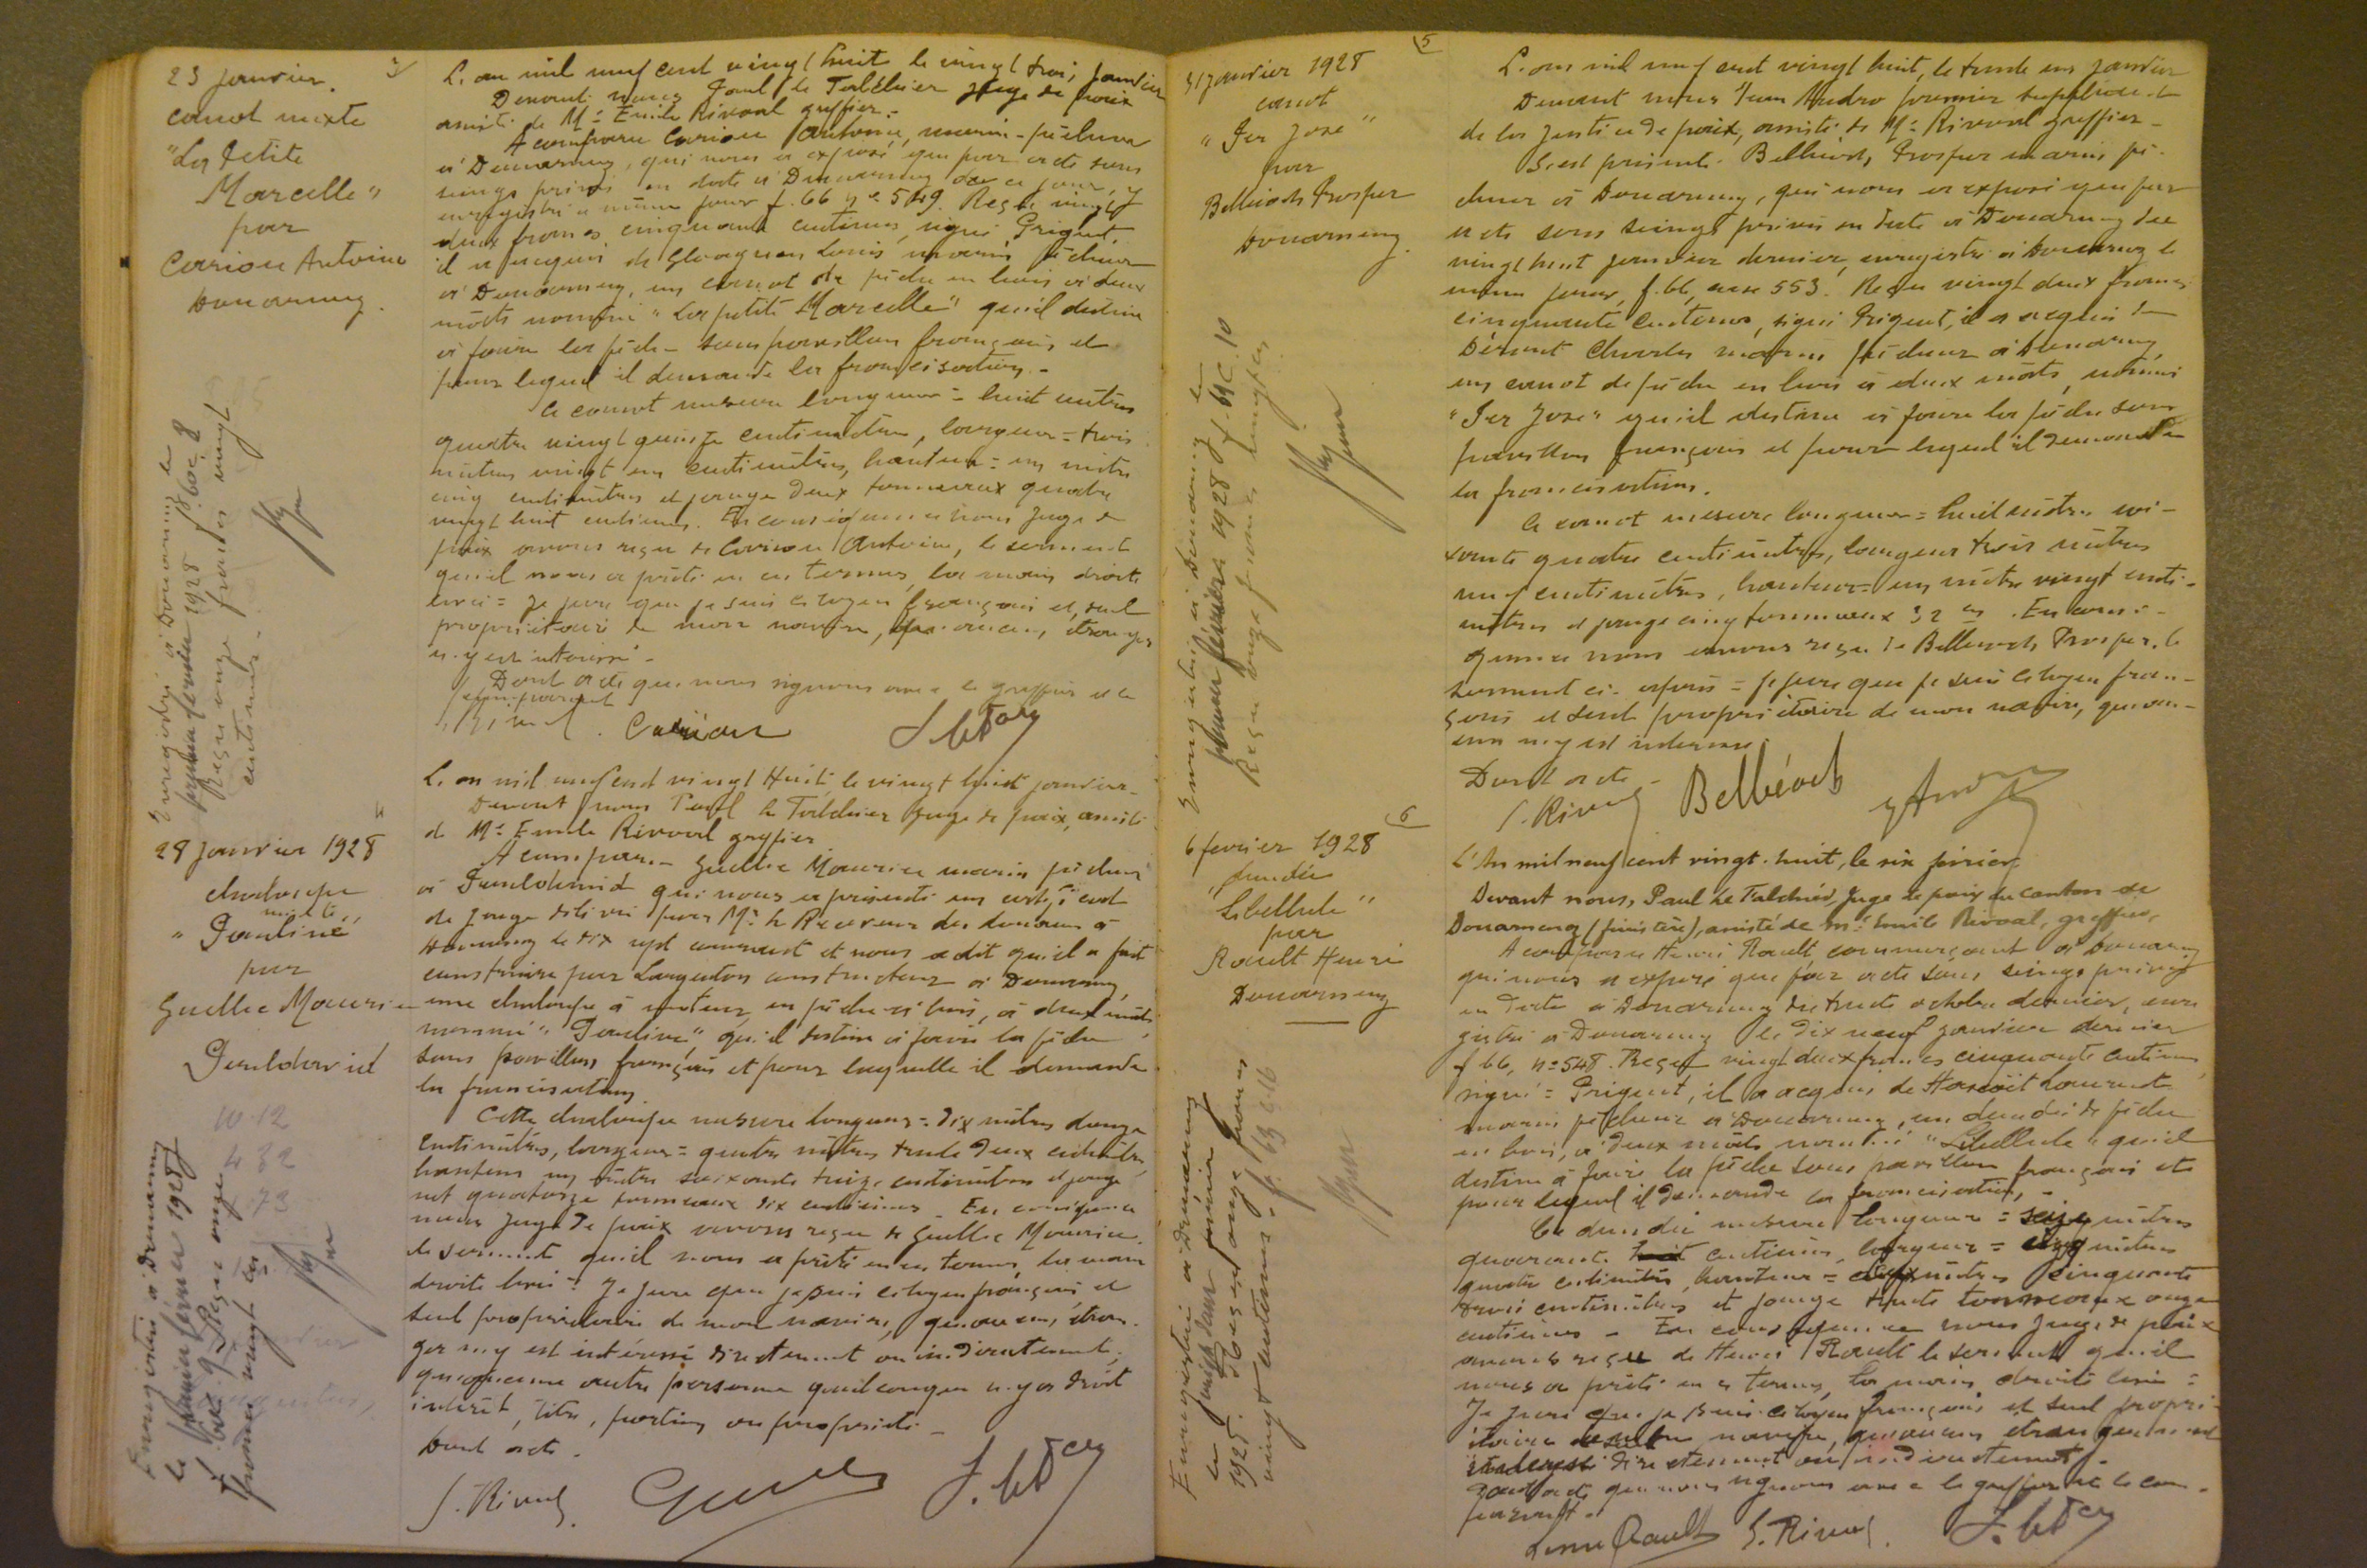 23 janvier.
canot mixte
"La Petite
Marcelle"
par
Cariou Antoine
Douarnenez.
Enregistré à Douarnenez le
premier février 1928 f. 60 c. 8
Reçu onze francs vingt
centimes.
3/
L'an mil neuf cent vingt huit le vingt trois janvier
Devant nous Paul le Taldnier Juge de paix
assisté de Me Emile Rivoal greffier.
A comparu Cariou Antoine, marin-pêcheur
à Douarnenez, qui nous a exposé que par acte sous
seings privés en date à Douarnenez de ce jour, y
enregistré le même jour f. 66 no 549. Reçu vingt
deux francs cinquante centimes, signé Prigent,
il a acquis de Gloaguen Louis marin pêcheur
à Douarnenez, un canot de pêche en bois à deux
mâts nommé "La petite Marcelle" qu'il destine
à faire la pêche sous pavillon français et
pour lequel il demande la francisation.-
Ce canot mesure longueur = huit mètres
quatre vingt quinze centimètres, largeur = trois
mètres vingt un centimètres, hauteur = un mètre
cinq centimètres et jauge deux tonneaux quatre
vingt huit centièmes. En conséquence nous Juge de
paix avons reçu de Cariou Antoine, le serment
qu'il nous a prêté en ces termes, la main droite
levée = Je jure que je suis citoyen français et seul
propriétaire de mon navire, qu'aucun étranger
n'y est intéressé.-
Dont acte que nous signons avec le greffier et le
comparant
Cariou
28 janvier 1928
chaloupe
mixte
"Pauline"
par
Guellec Maurice
Pouldavid
10.12
4 32
1.73
Enregistré à Douarnenez
le premier février 1928
f. 60 c 9 Reçu onze
francs vingt ces
L'an mil neuf cent vingt Huit, le vingt huit janvier.
Devant nous Paul le Taldnier Juge de paix, assisté
de Me Emile Rivoal greffier
A comparu.- Guellec Maurice marin pêcheur
à Pouldavid qui nous a présenté un certificat
de jauge délivré par Mr le Receveur des douanes à
Douarnenez le dix sept courant et nous a dit qu'il a fait
construire par Largenton constructeur à Douarnenez
une chaloupe à moteur, en pêche et bois, à deux mâts
nommé "Pauline" qu'il destine à faire la pêche
sous pavillon français et pour laquelle il demande
la francisation
Cette chaloupe mesure longueur = dix mètres douze
centimètres, largeur = quatre mètres trente deux centimètres
hauteur un mètre soixante treize centimètres et jauge
net quatorze tonneaux dix centièmes - En conséquence
nous Juge de paix avons reçu de Guellec Maurice
le serment qu'il nous a prêté en ces termes, la main
droite levée = Je jure que je suis citoyen français et
seul propriétaire de mon navire, qu'aucun étran-
ger n'y est intéressé directement ou indirectement,
qu'aucune autre personne quelconque n'y a droit
intérêt, titre, portion ou propriété.-
Dont acte.
E. Rivoal
31 janvier 1928
canot
"Per Jose"
par
Belbéoch Prosper
Douarnenez.
Enregistré à Douarnenez le
premier février 1928 f. 61 c. 10
Reçu onze francs vingt ces
5
L'an mil neuf cent vingt huit, le trente un janvier
Devant nous Jean Andro premier suppléant
de la Justice de paix, assisté de Me Rivoal greffier-
S'est présenté. Belbéoch, Prosper marin pê-
cheur à Douarnenez, qui nous a exposé que par
acte sous seings privés en date à Douarnenez du
vingt huit janvier dernier, enregistré à Douarnenez le
même jour, f. 66, case 553. Reçu vingt deux francs
cinquante centimes, signé Prigent, il a acquis de
Charles marin pêcheur à Douarnenez
un canot de pêche en bois à deux mâts, nommé
"Per Jose" qu'il destine à faire la pêche sous
pavillon français et pour lequel il demande
la francisation.
Ce canot mesure longueur = huit mètres soi-
xante quatre centimètres, largeur trois mètres
neuf centimètres, hauteur = un mètre vingt centi-
mètres et jauge cinq tonneaux 32 es. En consé-
quence nous avons reçu de Belbéoch Prosper, le
serment ci-après = je jure que je suis citoyen fran-
çais et seul propriétaire de mon navire, qu'au-
cun n'y est intéressé.
Dont acte -
E. Rivoal Belbéoch J Andro
6 février 1928
"dundée
Libellule"
par
Rault Henri
Douarnenez
Enregistré à Douarnenez
le février
1928. Reçu onze francs
vingt centimes. f. 63 c. 16
6
L'An mil neuf cent vingt-huit, le six février,
Devant nous, Paul Le Taldnier, Juge de paix du canton de
Douarnenez (finistère), assisté de Me Emile Rivoal, greffier,
A comparu Henri Rault commerçant à Douarnenez
qui nous a exposé que par acte sous seings privés
en date à Douarnenez du trente octobre dernier, enre
gistré à Douarnenez le dix neuf janvier dernier
f 66, no 548. Reçu vingt deux francs cinquante centimes
signé = Prigent, il a acquis de Laurent
marin pêcheur à Douarnenez, un dundée de pêche
en bois, à deux mâts nommé "Libellule" qu'il
destine à faire la pêche sous pavillon français et
pour lequel il demande la francisation, -
Ce dundée mesure longueur = seize mètres
quarante centimes, largeur = cinq mètres
quatre centimètres, hauteur = deux mètres cinquante
trois centimètres et jauge trente tonneaux onze
centièmes - En conséquence nous Juge de paix
avons reçu de Henri Rault le serment qu'il
nous a prêté en ces termes, la main droite levée =
Je jure que je suis citoyen français et seul propri-
étaire navire, qu'aucun étranger n'est
intéressé directement ou indirectement.
Dont acte que nous signons avec le greffier et le com-
parant.-
Rault E. Rivoal